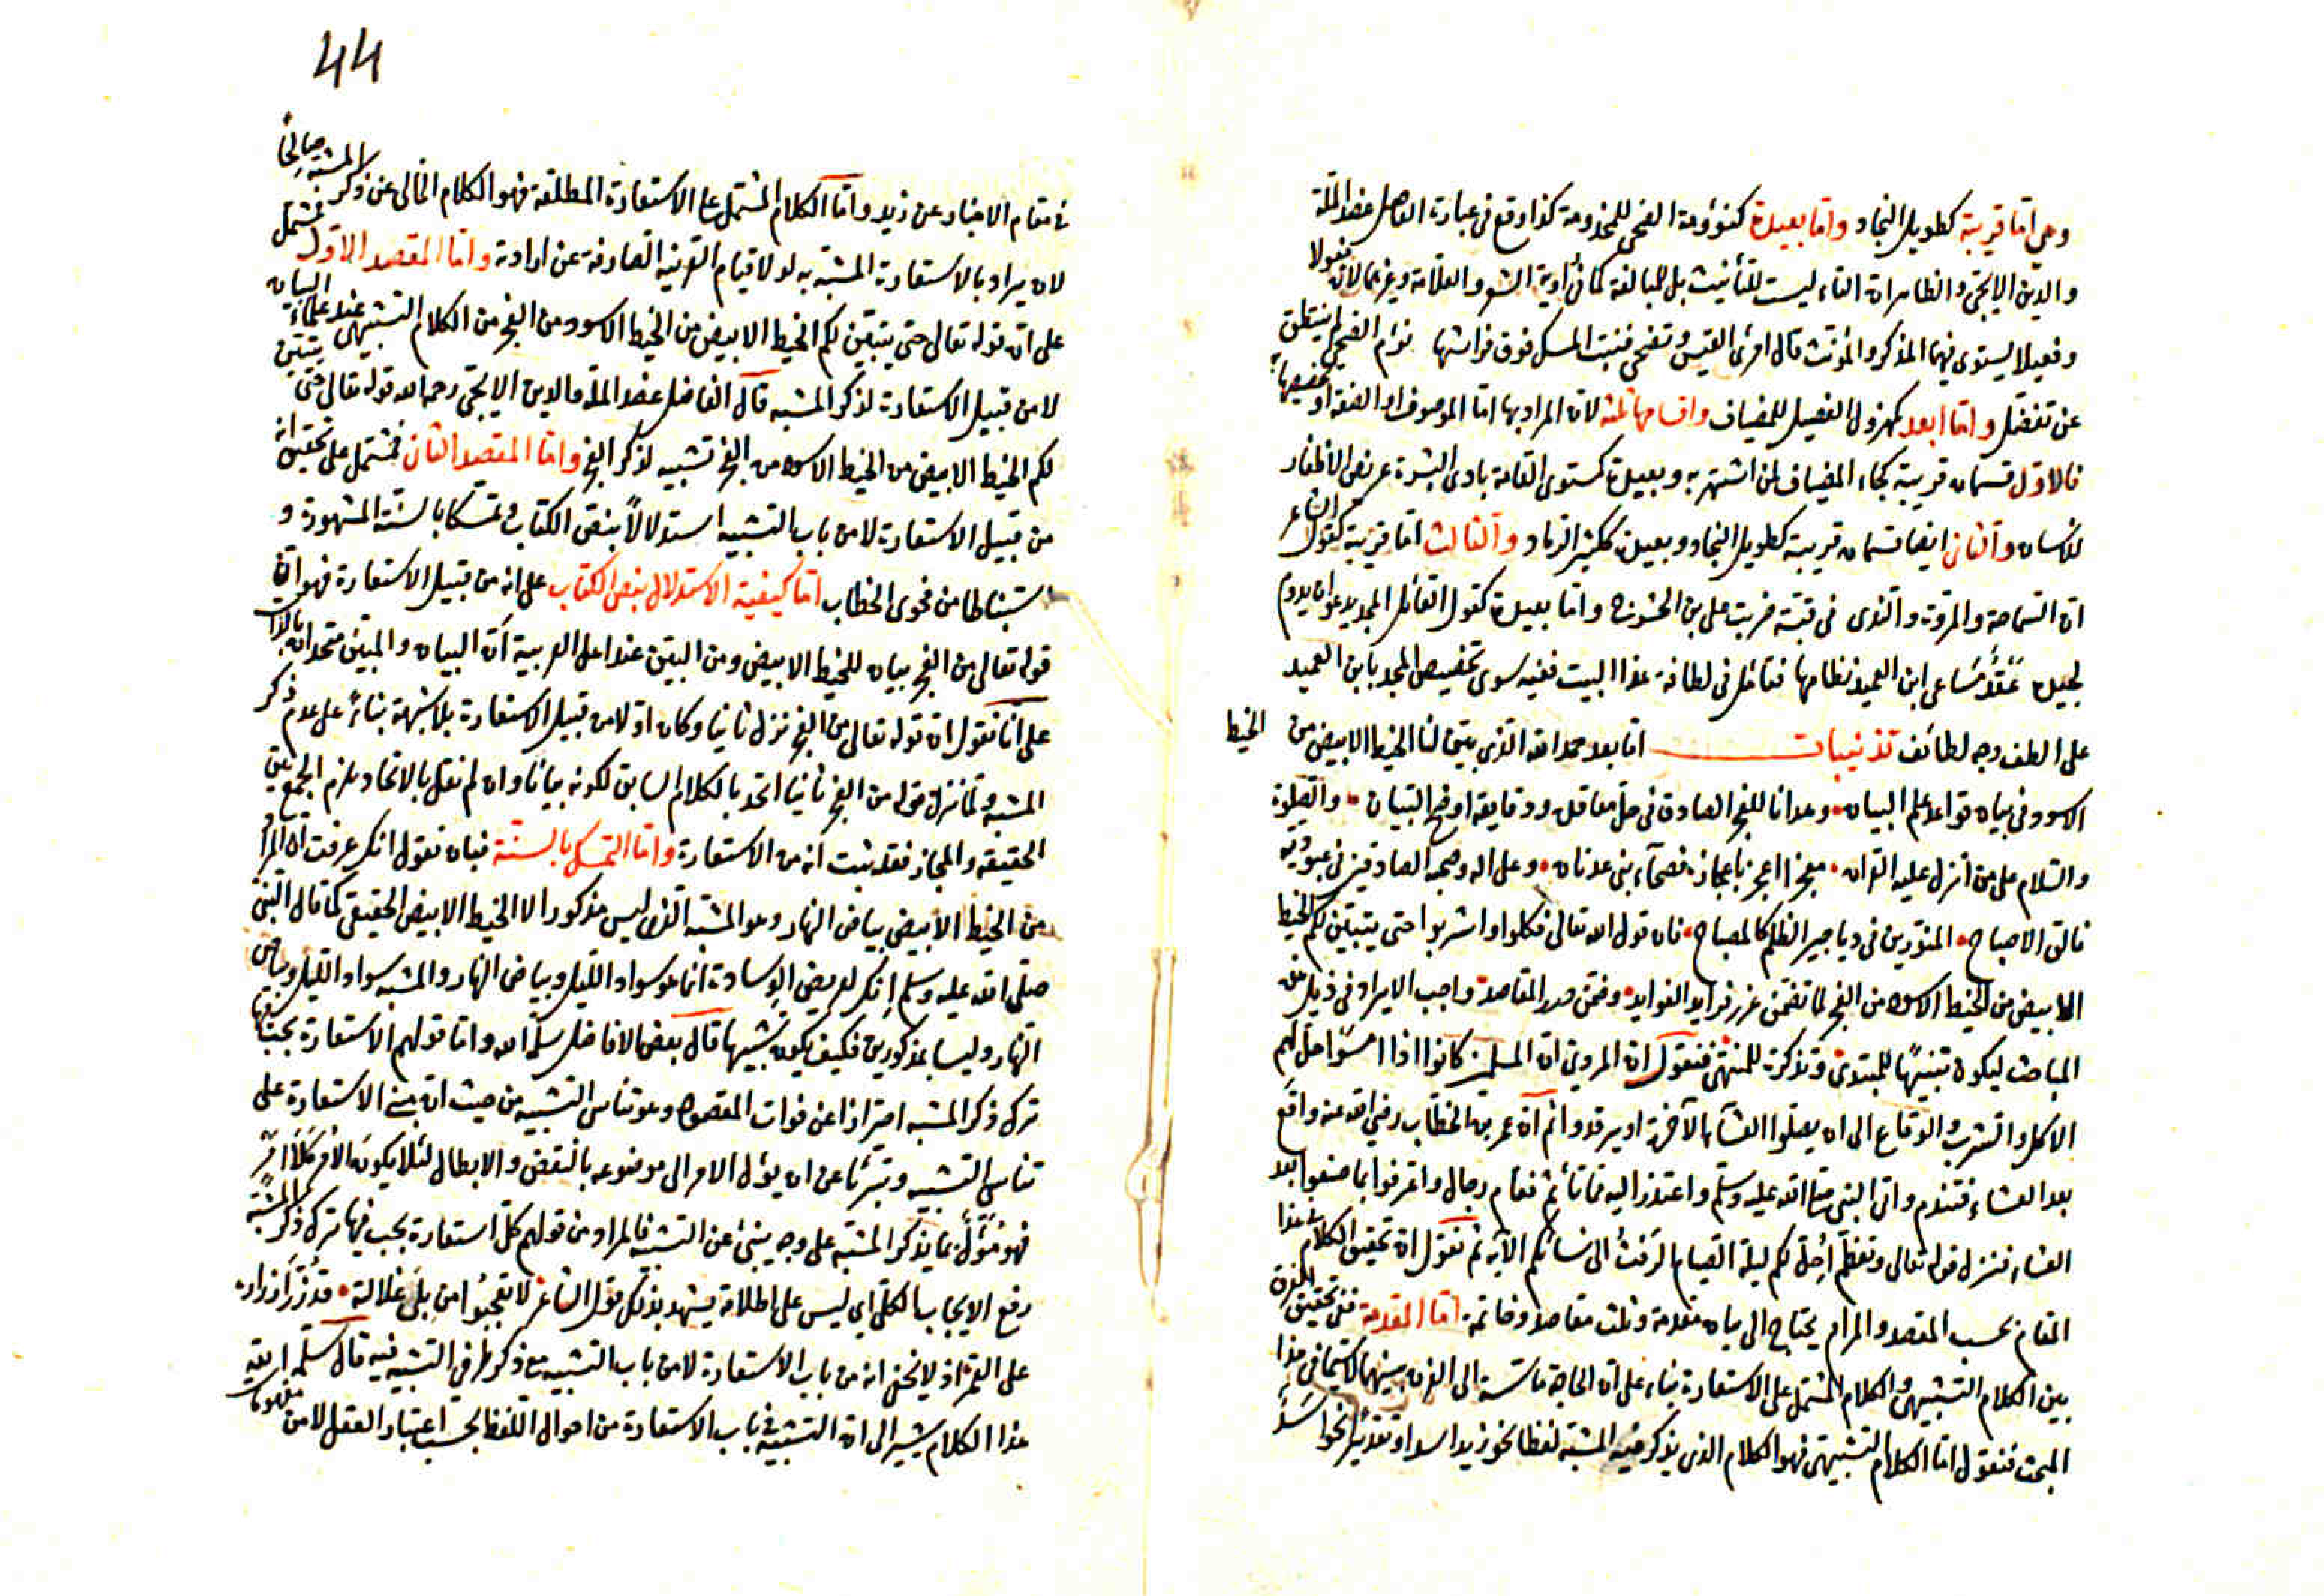 وهي اما قريبة كطويل النجاد واما بعيدة كنؤومة الضحى للمخدومة كذا وقع في عبارة الفاضل عضد الملة
والدين الايجي والظاهر ان التاء ليست للتأنيث بل للمبالغة كما في راوية الشعر والعلامة وغيرهما لان فعولا
وفعيلا يستوى فيهما المذكر والمؤنث قال امرئ القيس وتضحى فتيت المسك فوق فراشها نؤم الضحى لم تنتطق
عن تفضل واما ابعد كمهزول الفصيل للمضياف واقسامها ثلثة لان المراد بها اما الموصوف او الصفة او تخصيصها به
فالاول قسمان قريبة كجاء المضياف لمن اشتهر به وبعيدة كمستوى القامة بادى البشرة عريض الاظفار
للانسان والثانى ايضا قسمان قريبة كطويل النجاد وبعيدة ككثير الرماد والثالث اما قريبة كقول الشاعر
ان السماحة والمروة والندى فى قبة ضربت على بن الحشرج واما بعيدة كقول القائل المجد يدعو ان يدوم
لجيده عقد مساعى ابن العميد نظامها فتأمل فى لطافة هذا البيت ففيه سوى تخصيص المجد بابن العميد
على الطف وجه لطائف تذنيبات اما بعد حمد الله الذى بيّن لنا الخيط الابيض من الخيط
الاسود فى بيان قواعد علم البيان وهدانا للفجر الصادق فى حل معاقل ودقايقه اوضح التبيان والصلوة
والسلام على من انزل عليه القران معجزا اعجز باعجازه فصحاء بنى عدنان وعلى اله وصحبه الصادقين فى عبودية
فالق الاصباح المنورين فى دياجير الظلم كالمصباح فان قول الله تعالى فكلوا واشربوا حتى يتبين لكم الخيط
الابيض من الخيط الاسود من الفجر لما تضمن غرر فرايد الفوايد وضمن درر المقاصد واجب الايراد فى ذيل هذه
المباحث ليكون تنبيها للمبتدى وتذكرة للمنتهى فنقول ان المروى ان المسلمين كانوا اذا امسوا حل لهم
الاكل والشرب والوقاع الى ان يصلوا العشاء الآخرة او يرقدوا ثم ان عمر بن الخطاب رضى الله عنه واقع
بعد العشاء فتندم واتى النبى صلى الله عليه وسلم واعتذر اليه فقام رجال واعترفوا بما صنعوا بعد
العشاء فنزل قوله تعالى وتعظم احل لكم ليلة الصيام الرفث الى نسائكم الآية ثم نقول ان تحقيق الكلام فى هذا
المقام بحسب المقصد والمرام يحتاج الى بيان مقدمة وثلث مقاصد وخاتمة اما المقدمة ففى تحقيق الفرق
بين الكلام التشبيهى والكلام المشتمل على الاستعارة بناء على ان الحاجة ماسة الى الفرق بينهما لا سيما فى هذا
المبحث فنقول اما الكلام التشبيهى فهو الكلام الذى يذكر فيه المشبه لفظا نحو زيد اسد او تقديرا نحو اسد
44
فى مقام الاخبار عن زيد واما الكلام المشتمل على الاستعارة المطلقة فهو الكلام الخالى عن ذكر المشبه صالحا
لان يراد بالاستعارة المشبه به لولا قيام القرينة الصارفة عن ارادته واما المقصد الاول فمشتمل
على ان قوله تعالى حتى يتبين لكم الخيط الابيض من الخيط الاسود من الفجر من الكلام التشبيهى عند علماء البيان
لا من قبيل الاستعارة لذكر المشبه قال الفاضل عضد الملة والدين الايجى رحمه الله قوله تعالى حتى يتبين
لكم الخيط الابيض من الخيط الاسود من الفجر تشبيه لذكر الفجر واما المقصد الثانى فمشتمل على تحقيق انه
من قبيل الاستعارة لا من باب التشبيه استدلالاً بنص الكتاب وتمسكا بالسنة المشهورة و
استنباطا من فحوى الخطاب اما كيفية الاستدلال بنص الكتاب على انه من قبيل الاستعارة فهو ان
قوله تعالى من الفجر بيان للخيط الابيض ومن البين عند اهل العربية ان البيان والمبين متحدان بالذات
على انا نقول ان قوله تعالى من الفجر نزل ثانيا وكان اولا من قبيل الاستعارة بلا شبهة بناءً على عدم ذكر
المشبه ولما نزل قوله من الفجر ثانيا اتحد بالكلام السابق لكونه بيانا وان لم نقل بالاتحاد يلزم الجمع بين
الحقيقة والمجاز فقد ثبت انه من الاستعارة واما التمسك بالسنة فبان نقول انك عرفت ان المراد
من الخيط الابيض بياض النهار وهو المشبه الذى ليس مذكورا لا الخيط الابيض الحقيقى كما قال النبى
صلى الله عليه وسلم انك لعريض الوسادة انما هو سواد الليل وبياض النهار والمشبه سواد الليل وبياض
النهار وليسا بمذكورين فكيف يكون تشبيها قال بعض الافاضل سلمه الله واما قولهم الاستعارة يجب فيها
ترك ذكر المشبه احترازا عن فوات المقصود وهو تناسى التشبيه من حيث ان مبنى الاستعارة على
تناسى التشبيه وتبرئا عن ان يؤل الامر الى موضوعه بالنقض والابطال لئلا يكون الامر كلّا امر
فهو مُؤَوَّل بما يذكر المشبه على وجه ينبئ عن التشبيه فالمراد من قولهم كل استعارة يجب فيها ترك ذكر المشبه
رفع الايجاب الكلى اى ليس على اطلاقه يشهد بذلك قول الشاعر لا تعجبوا من بلى غلالته قد زر ازراره
على القمر اذ لا يخفى انه من باب الاستعارة لا من باب التشبيه مع ذكر طرفى التشبيه فيه قال سلمه الله
هذا الكلام يشير الى ان التشبيه فى باب الاستعارة من احوال اللفظ بحسب اعتبار العقل لا من